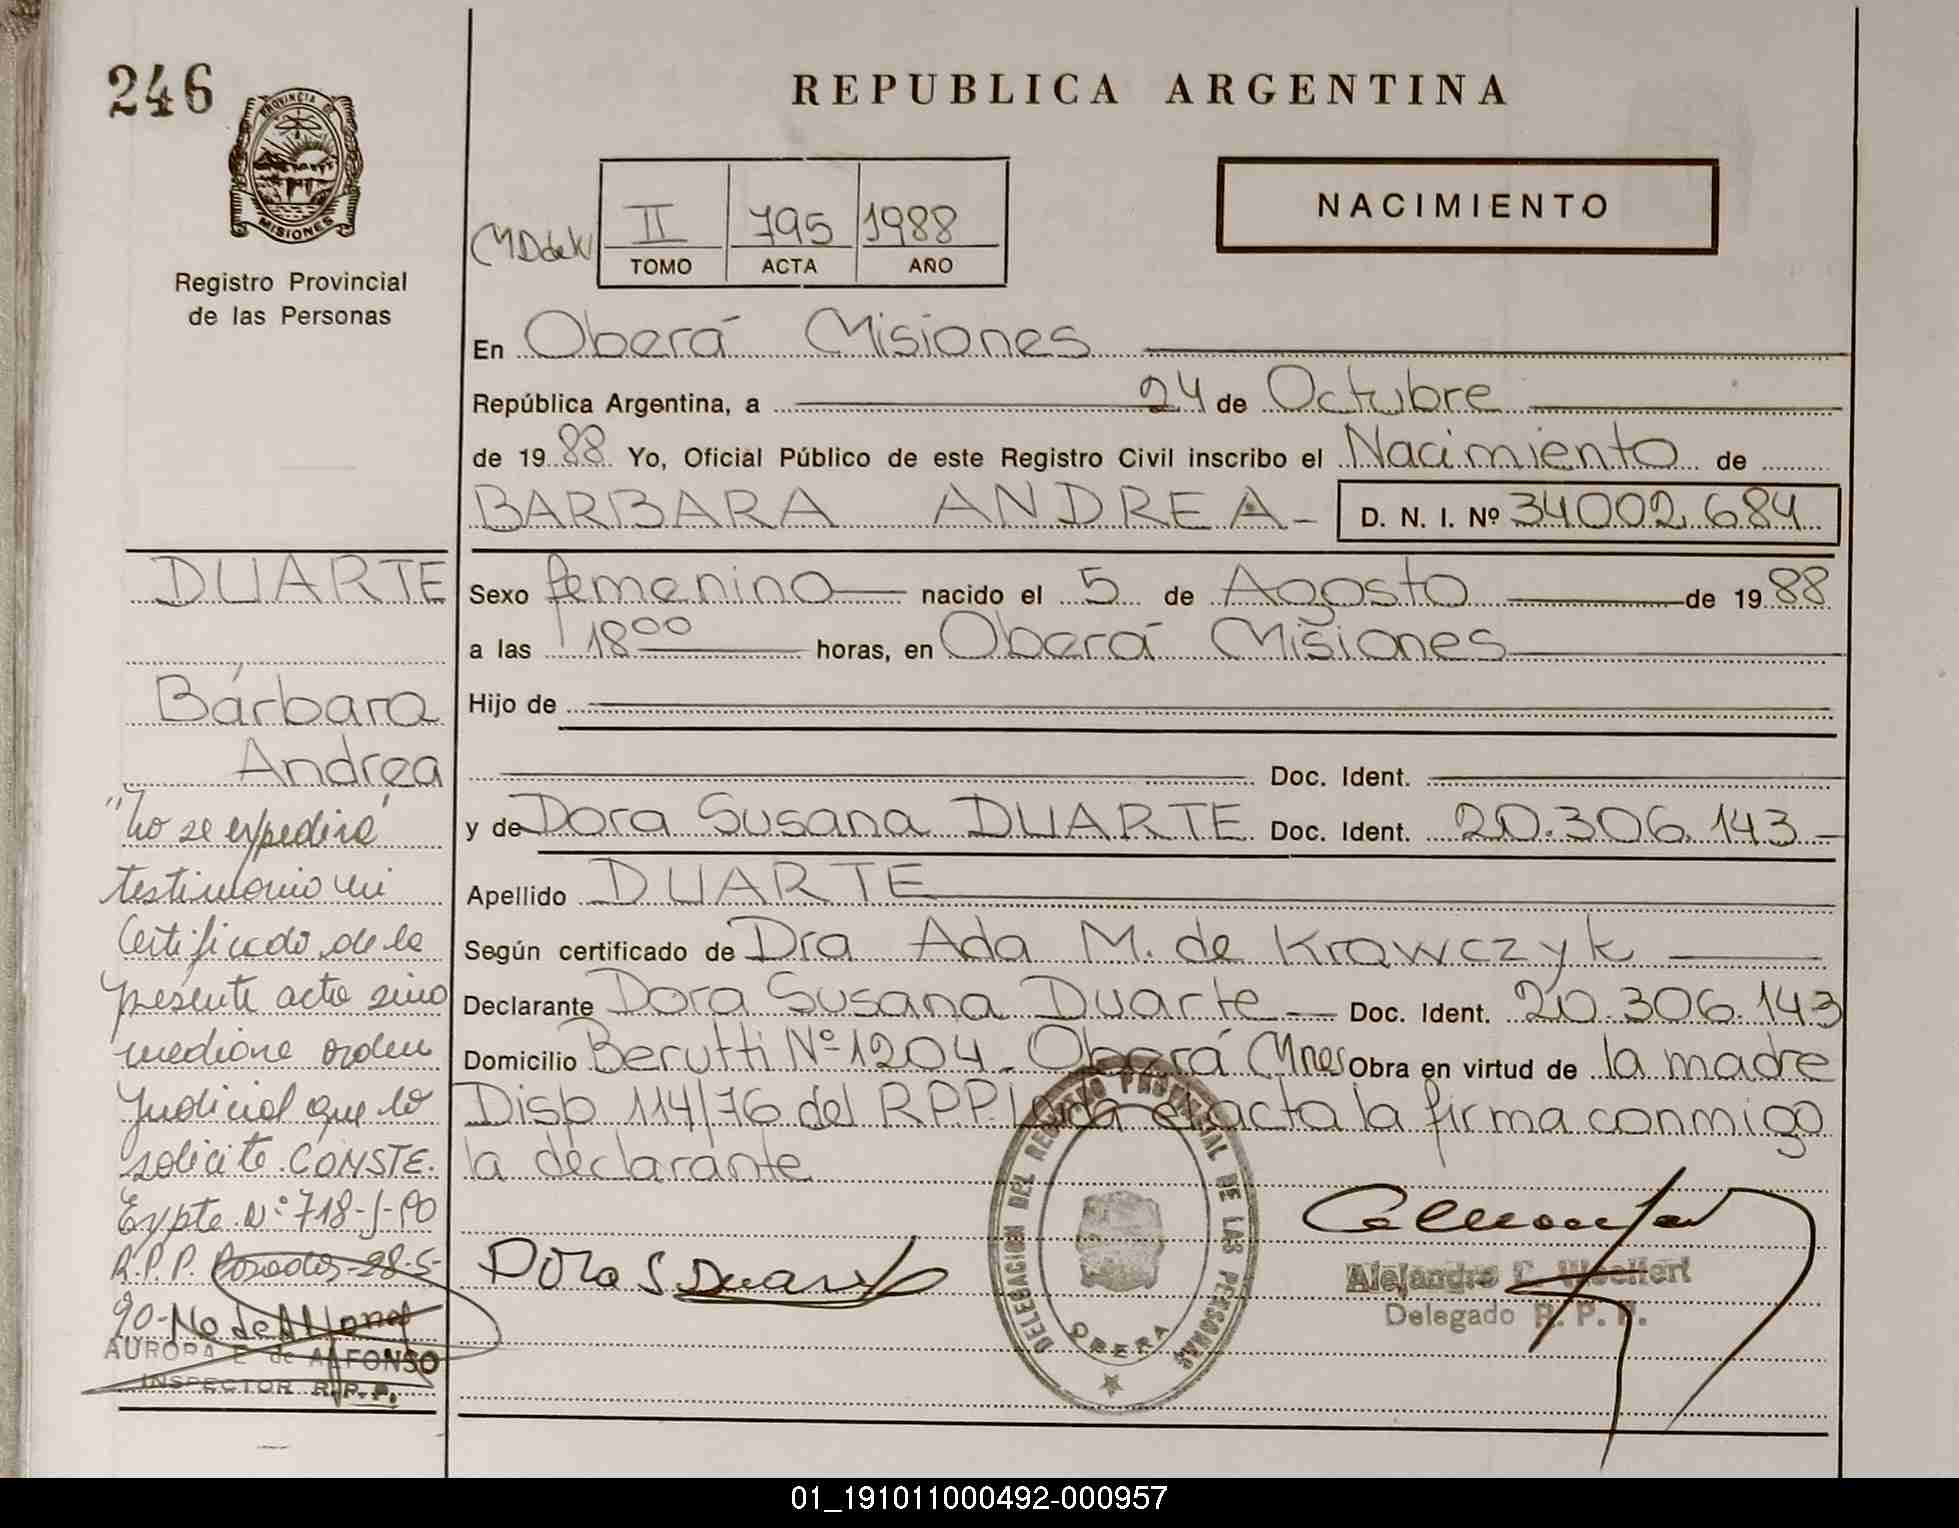 246
PROVINCIA DE
MISIONES
Registro Provincial
de las Personas
REPUBLICA ARGENTINA
NACIMIENTO
II 795 1988
TOMO ACTA AÑO
En Oberá Misiones
República Argentina, a 24 de Octubre
de 1988 Yo, Oficial Público de este Registro Civil inscribo el Nacimiento de
BARBARA ANDREA- D. N. I. Nº 34002.684
Sexo femenino nacido el 5 de Agosto de 1988
a las 18 00 horas, en Oberá Misiones
Hijo de
Doc. Ident.
y de Dora Susana DUARTE Doc. Ident. 20.306.143-
Apellido DUARTE
Según certificado de Dra Ada M. de Krawczyk
Declarante Dora Susana Duarte Doc. Ident. 20.306.143
Domicilio Berutti Nº 1204- Oberá Mnes Obra en virtud de la madre
Disp 114/76 del R.P.P. Leída el acta la firma conmigo
la declarante
Dora S Duarte
DELEGACION DEL REGISTRO PROVINCIAL DE LAS PERSONAS
OBERA
Alejandro C. Woelfert
Delegado R. P. P.
DUARTE
Bárbara
Andrea
"No se expedirá
testimonio ni
Certificado de la
presente acta sino
mediane orden
Judicial que lo
solicite. CONSTE.
Expte Nº 718-J-90
R.P.P. Posadas-28-5-
90-
AURORA E de ALFONSO
INSPECTOR R.P.P.
01_191011000492-000957